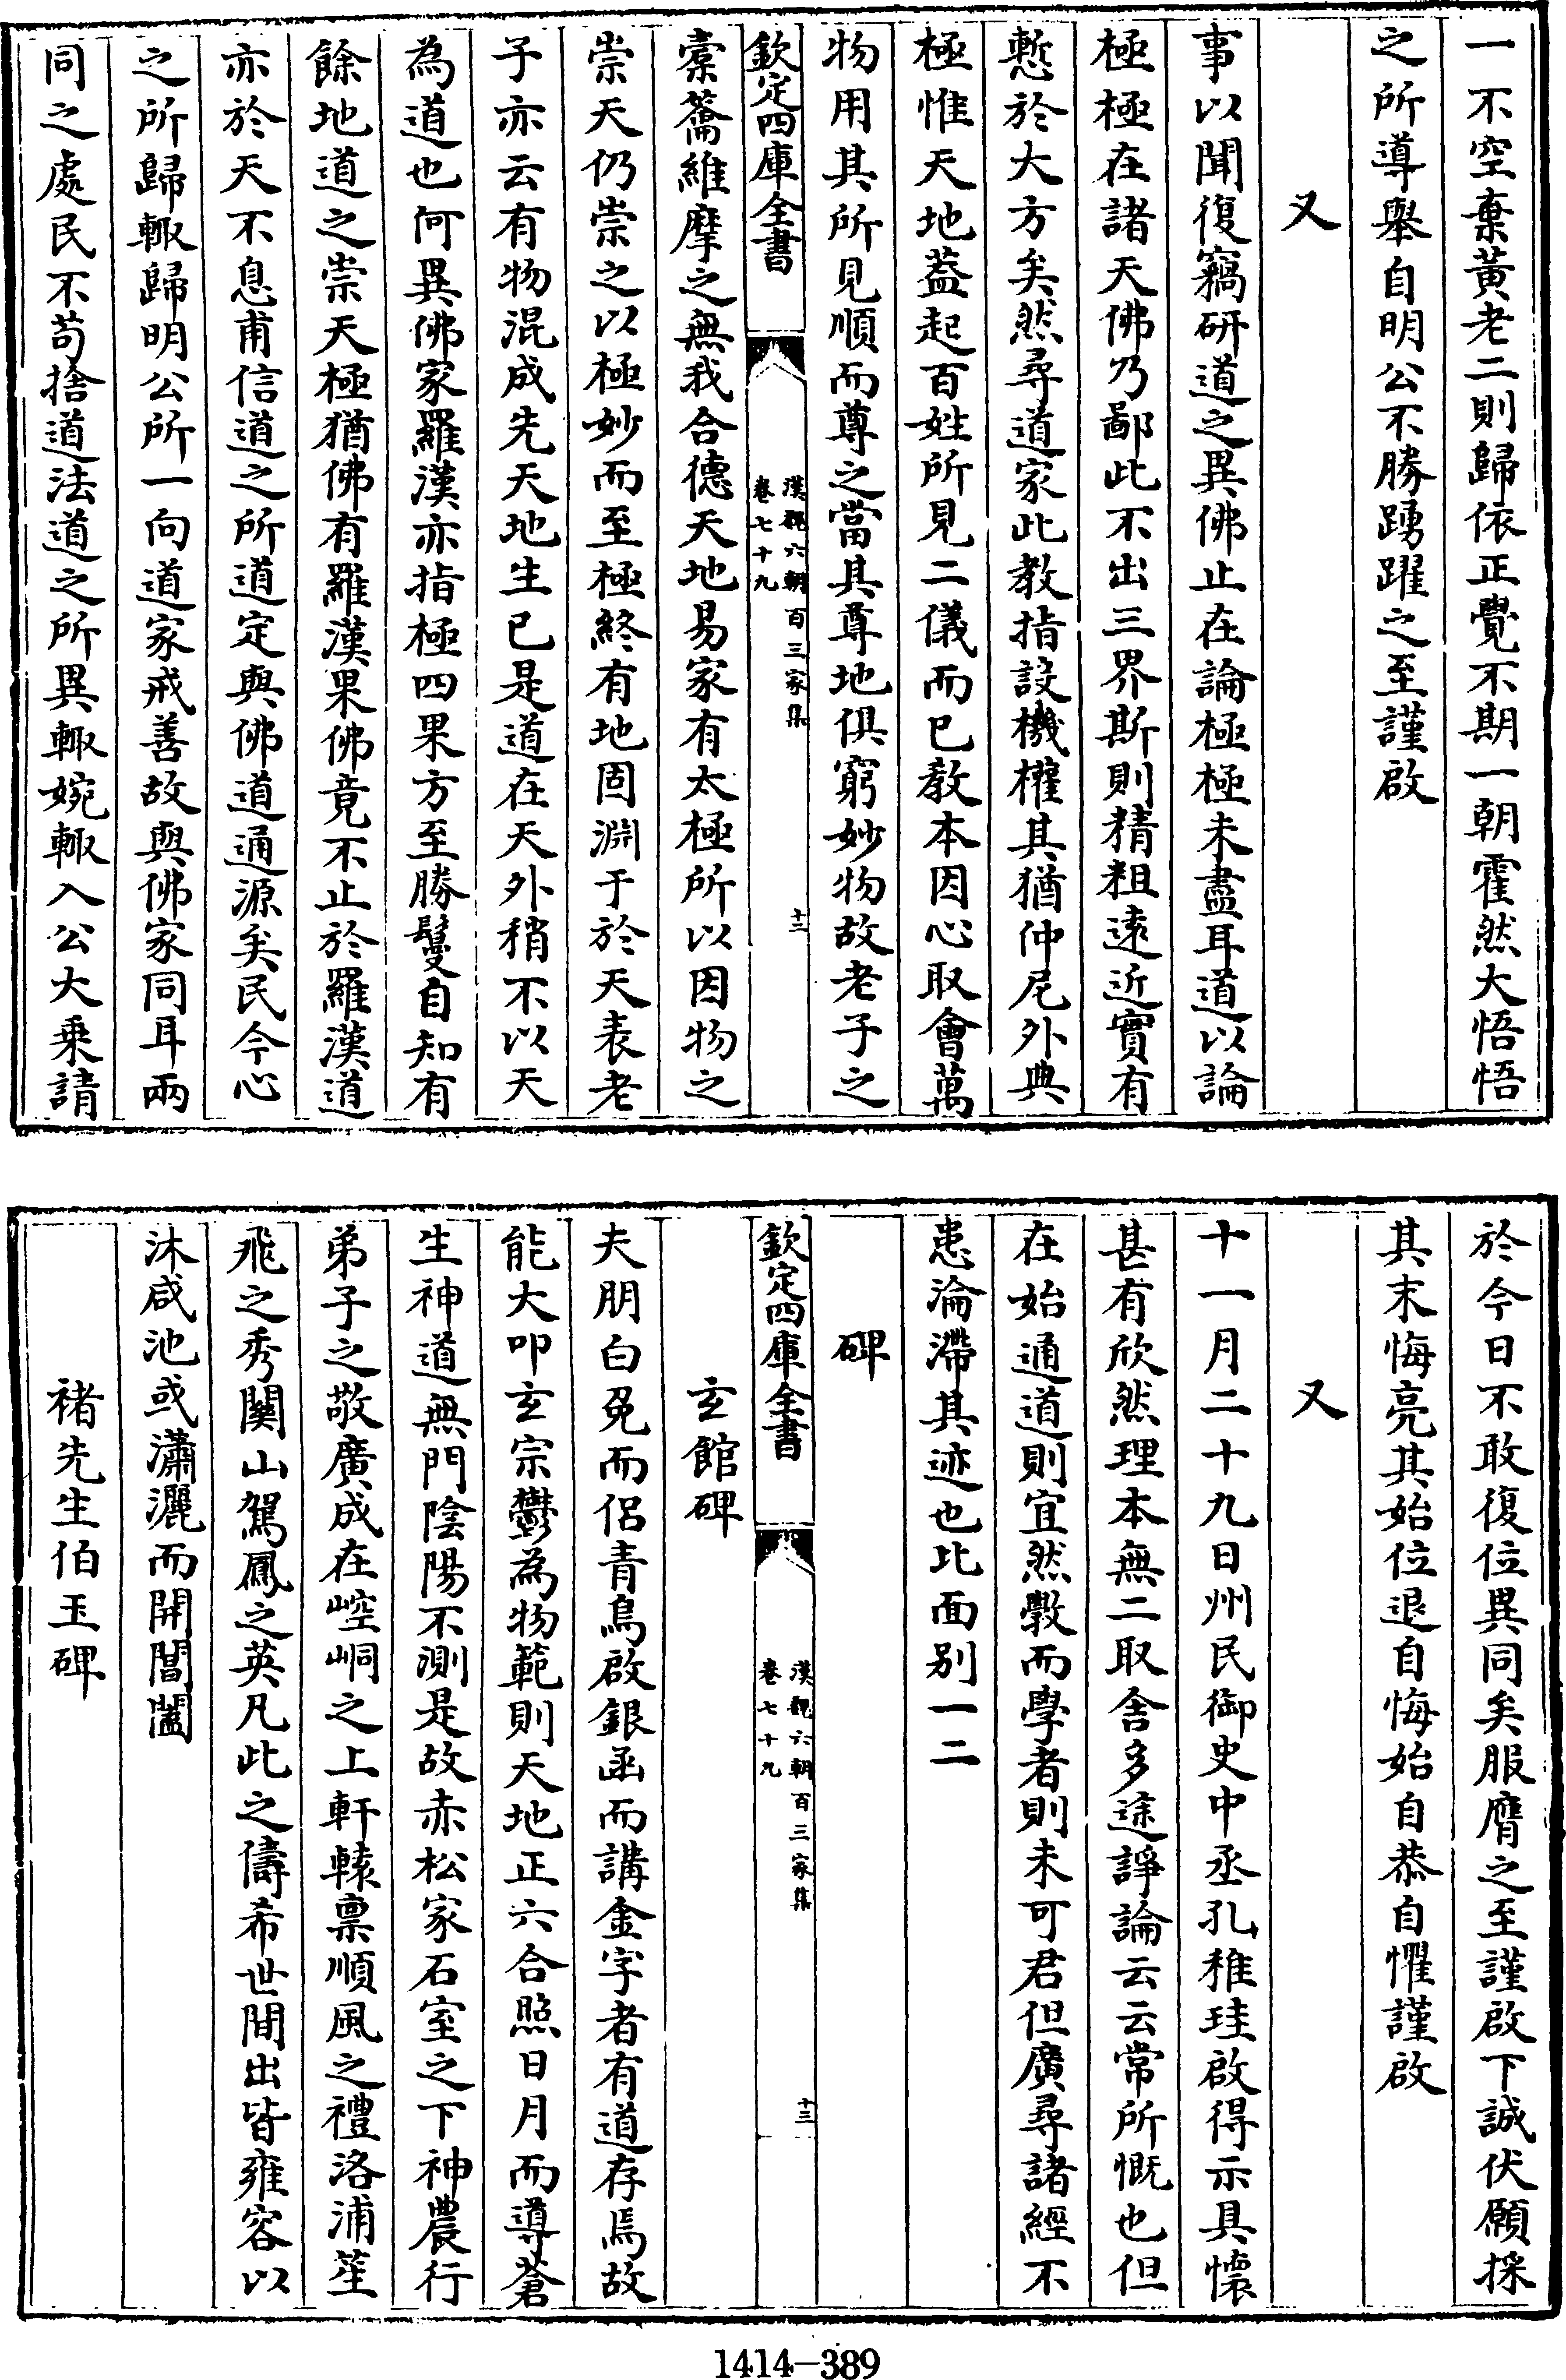 一不空棄黃老二則歸依正覺不期一朝霍然大悟悟
之所導舉自明公不勝踴躍之至謹啟
又
事以聞復竊研道之異佛止在論極極未盡耳道以論
極極在諸天佛乃鄙此不出三界斯則精粗遠近實有
慙於大方矣然尋道家此教指設機權其猶仲尼外典
極惟天地蓋起百姓所見二儀而已教本因心取會萬
物用其所見順而尊之當其尊地俱窮妙物故老子之
欽定四庫全書
漢魏六朝百三家集
卷七十九
十三
橐籥維摩之無我合德天地易家有太極所以因物之
崇天仍崇之以極妙而至極終有地固淵于於天表老
子亦云有物混成先天地生已是道在天外稍不以天
為道也何異佛家羅漢亦指極四果方至勝鬘自知有
餘地道之崇天極猶佛有羅漢果佛竟不止於羅漢道
亦於天不息甫信道之所道定與佛道通源矣民今心
之所歸輙歸明公所一向道家戒善故與佛家同耳兩
同之處民不苟捨道法道之所異輙婉輙入公大乗請
於今日不敢復位異同矣服膺之至謹啟下誠伏願採
其末悔亮其始位退自悔始自恭自懼謹啟
又
十一月二十九日州民御史中丞孔稚珪啟得示具懷
甚有欣然理本無二取舍多途諍論云云常所慨也但
在始通道則宜然斅而學者則未可君但廣尋諸經不
患淪滯其迹也比面别一二
碑
欽定四庫全書
漢魏六朝百三家集
卷七十九
十三
玄館碑
夫朋白兔而侣青鳥啟銀函而講金字者有道存焉故
能大叩玄宗鬱為物範則天地正六合照日月而導蒼
生神道無門陰陽不測是故赤松家石室之下神農行
弟子之敬廣成在崆峒之上軒轅禀順風之禮洛浦笙
飛之秀關山駕鳳之英凡此之儔希世間出皆雍容以
沐咸池或瀟灑而開閶闔
禇先生伯玉碑
1414—389